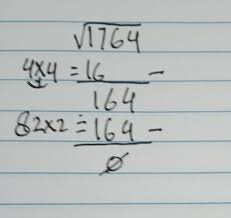 √1764
4x4 = 16 -
164
82x2 = 164 -
0